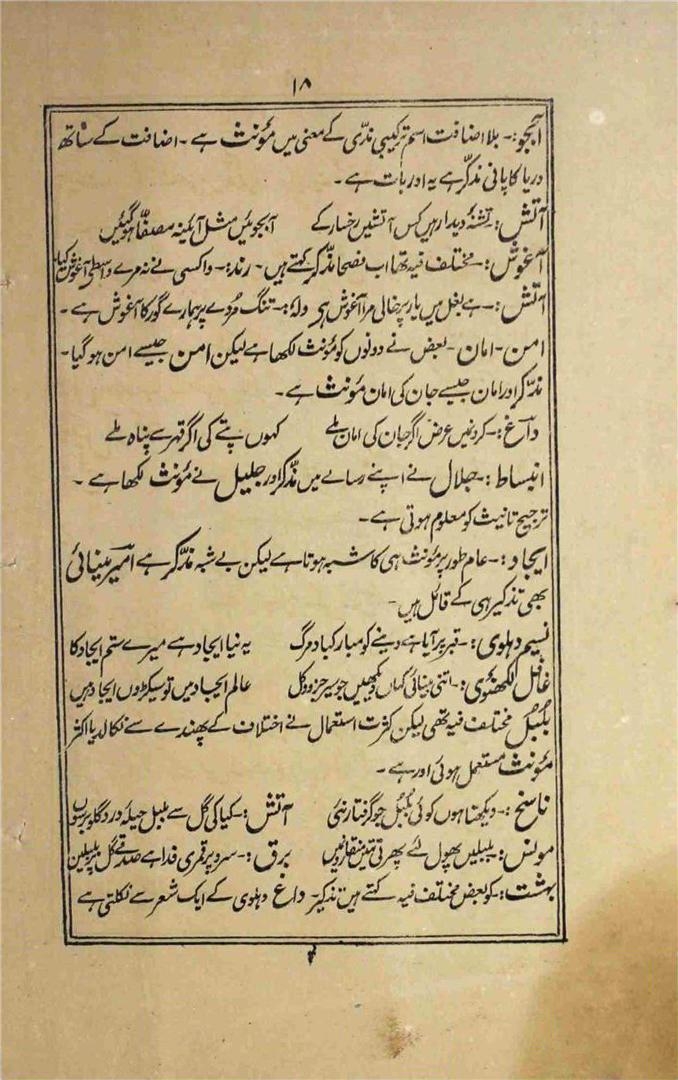 ۱۸
آبجو:۔ بلا اضافت اسم ترکیبی ندّی کے معنی میں مؤنث ہے ۔ اضافت کے ساتھ
دریا کا پانی مذکّر ہے یہ اور بات ہے ۔
آتش:۔ تشنۂ دیدار ہیں کس آتشیں رخسار کے آبجوئیں مثل آئینہ مصفّا ہو گئیں
آغوش:۔ مختلف فیہ تھا اب فصحا مذکّر کہتے ہیں۔ رند:۔ وا کسی نے نہ مرے واسطے آغوش کیا
آتش:۔ ہے بغل میں یار پر خالی مرا آغوش ہی ولہٗ:۔ تنگ مردے پر ہمارے گور کا آغوش ہے ۔
امن۔ امان۔ بعض نے دونوں کو مؤنث لکھا ہے لیکن امن جیسے امن ہو گیا۔
مذکّر اور امان جیسے جان کی امان مؤنث ہے۔
داغ:۔ کروں میں عرض اگر جان کی امان ملے کہوں پتے کی اگر قہر سے پناہ ملے
انبساط:۔ جلال نے اپنے رسالے میں مذّکر اور جلیل نے مؤنث لکھا ہے ۔
ترجیح تانیث کو معلوم ہوتی ہے۔
ایجاد:۔ عام طور پر مؤنث ہی کا شبہ ہوتا ہے لیکن بے شبہ مذکّر ہے امیر مینائی
بھی تذکیر ہی کے قائل ہیں۔
نسیم دہلوی:۔ قبر پر آیا ہے دینے کو مبارکباد مرگ یہ نیا ایجاد ہے میرے ستم ایجاد کا
غافل لکھنوی:۔ اتنی بینائی کہاں دیکھیں جو سیر جزو و کل عالم ایجاد میں تو سیکڑوں ایجاد ہیں
بُلبُل مختلف فیہ تھی لیکن کثرت استعمال نے اختلاف کے پھندے سے نکالدیا اکثر
مؤنث مستعمل ہوئی اور ہے۔
ناسخ:۔ دیکھتا ہوں کوئی بلبل جو گرفتار نئی آتش:۔ کیا کی گل سے بلبل حیلۂ درد گلو برسوں
مونس:۔ بلبلیں پھول لئے پھرتی تھیں منقاروں میں برق:۔ سرو پر قمری فدا ہے صدقے گل پر بلبلین
بہشت:۔ کو بعض مختلف فیہ کہتے ہین تذکیر۔ داغ دہلوی کے ایک شعر سے نکلتی ہے